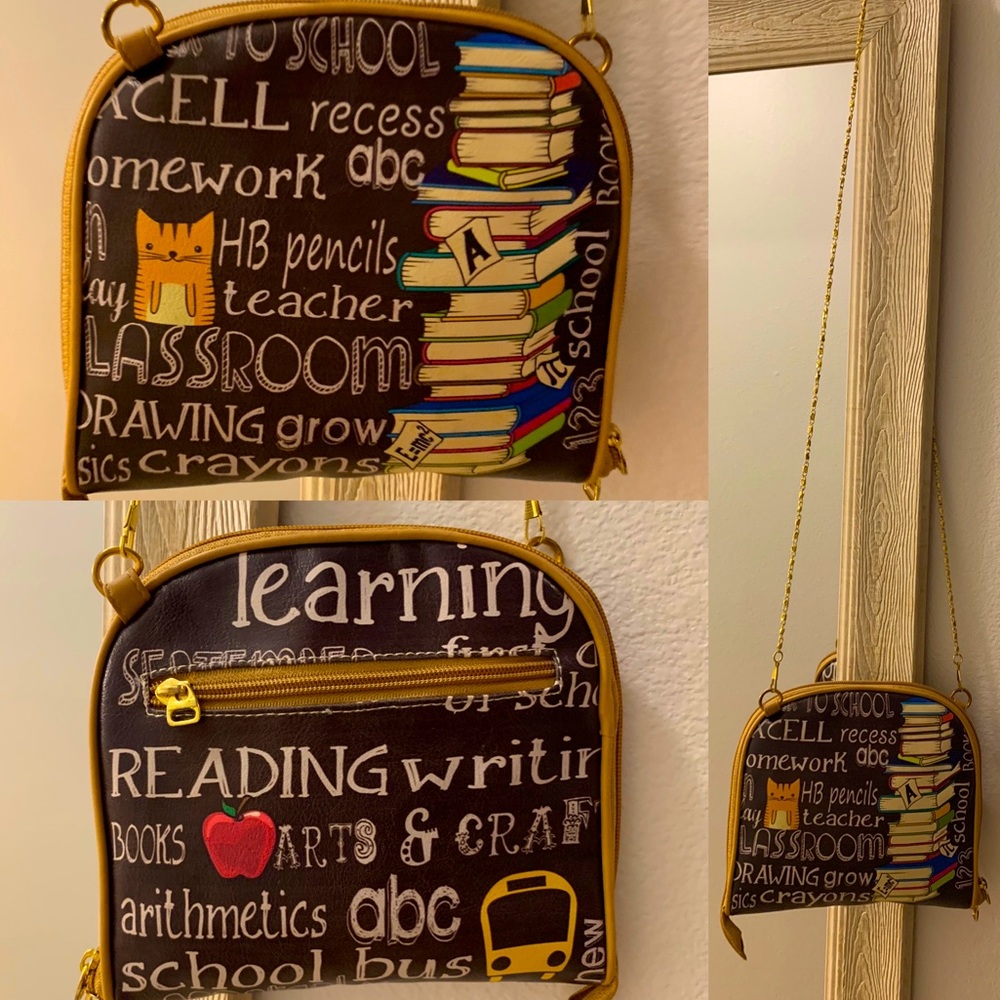 TO SCHOOL
XCELL recess
omework abc
HB pencils
A
ay teacher
LASSROOM
DRAWING grow
E=mc²
sics crayons
Book
school
123
learning
SEPTEMBER first
of scho
READING writin
BOOKS ARTS & CRAF
arithmetics abc
school bus
new
TO SCHOOL
XCELL recess
omework abc
HB pencils
A
ay teacher
LASSROOM
DRAWING grow
sics crayons
Book
school
123